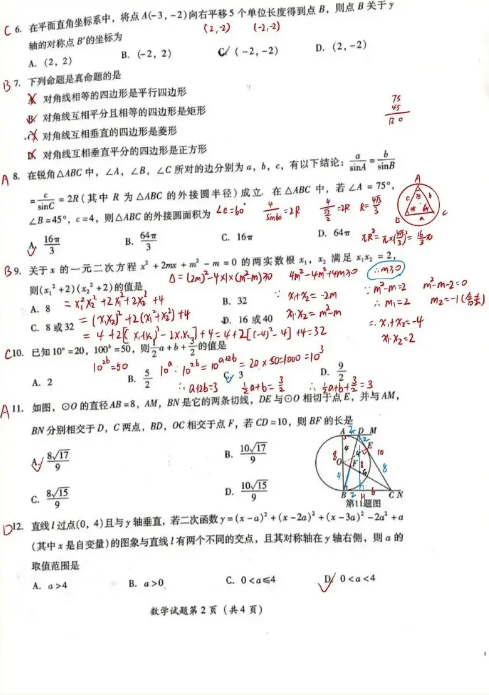 C 6. 在平面直角坐标系中，将点 A(-3，-2)向右平移 5 个单位长度得到点 B，则点 B 关于 y
轴的对称点 B'的坐标为
(2,-2) (-2,-2)
A. (2，2) B. (-2，2) C. (-2，-2) D. (2，-2)
B 7. 下列命题是真命题的是
A. 对角线相等的四边形是平行四边形
B. 对角线互相平分且相等的四边形是矩形
C. 对角线互相垂直的四边形是菱形
D. 对角线互相垂直平分的四边形是正方形
75
45
120
A 8. 在锐角△ABC 中，∠A，∠B，∠C 所对的边分别为 a，b，c，有以下结论：a/sinA = b/sinB
= c/sinC = 2R (其中 R 为△ABC 的外接圆半径)成立. 在△ABC 中，若∠A = 75°，
∠B=45°，c=4，则△ABC 的外接圆面积为
∠C=60° 4/sin60=2R
A. 16π/3 B. 64π/3 C. 16π D. 64π
B 9. 关于 x 的一元二次方程 x²+2mx+m²-m=0 的两实数根 x₁，x₂ 满足 x₁x₂=2，
则(x₁²+2)(x₂²+2)的值是
Δ=(2m)²-4×1×(m²-m)≥0 4m²-4m²+4m≥0 ∴m≥0
A. 8 B. 32
C. 8 或 32 D. 16 或 40
=x₁²x₂²+2x₁²+2x₂²+4
=(x₁x₂)²+2(x₁²+x₂²)+4
=4+2[(x₁+x₂)²-2x₁x₂]+4=4+2[(-4)²-4]+4=32
x₁+x₂=-2m
x₁x₂=m²-m
m²-m=2 m²-m-2=0
∴m₁=2 m₂=-1(舍去)
∴x₁+x₂=-4
x₁x₂=2
C 10. 已知 10ᵃ=20，100ᵇ=50，则 1/2 a+b+3/2 的值是
10²ᵇ=50 10ᵃ·10²ᵇ=10ᵃ⁺²ᵇ=20×50=1000=10³
A. 2 B. 5/2 C. 3 D. 9/2
∴a+2b=3 1/2a+b=3/2 ∴1/2a+b+3/2=3
A 11. 如图，⊙O 的直径 AB=8，AM，BN 是它的两条切线，DE 与⊙O 相切于点 E，并与 AM，
BN 分别相交于 D，C 两点，BD，OC 相交于点 F，若 CD=10，则 BF 的长是
A. 8√17/9 B. 10√17/9
C. 8√15/9 D. 10√15/9
A D M
E
O F
B C N
第11题图
D 12. 直线 l 过点(0，4)且与 y 轴垂直，若二次函数 y=(x-a)²+(x-2a)²+(x-3a)²-2a²+a
(其中 x 是自变量)的图象与直线 l 有两个不同的交点，且其对称轴在 y 轴右侧，则 a 的
取值范围是
A. a>4 B. a>0 C. 0<a≤4 D. 0<a<4
数学试题第 2 页（共 4 页）